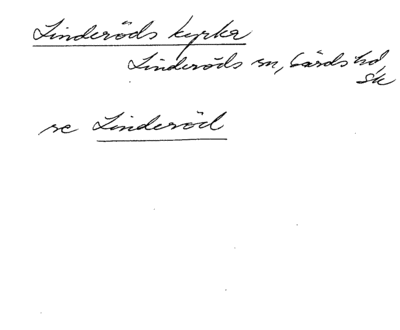 Linderöds kyrka
Linderöds sn, Gärds hd,
Sk
se Linderöd